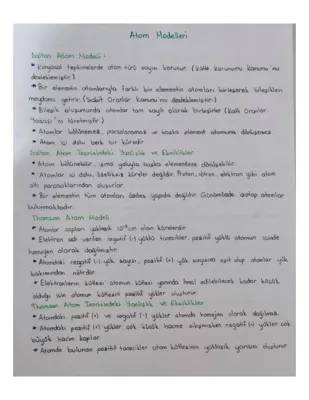 Atom Modelleri
Dalton Atom Modeli:
* Kimyasal tepkimelerde atom türü sayısı korunur (Kütle korunumu kanunu'nu
desteklemiştir)
* Bir elementin atomlarıyla farklı bir elementin atomları birleşerek bileşikleri
meydana getirir. (Sabit Oranlar Kanunu'nu desteklemiştir)
* Bileşik oluşumunda atomlar tam sayılı olarak birleşirler (Katlı Oranlar
Yasası'nı türetmiştir)
* Atomlar bölünemez, parçalanamaz ve başka element atomuna dönüşemez
* Atom, içi dolu berk bir küredir
Dalton Atom Teorisindeki Yanlışlık ve Eksiklikler
* Atom bölünebilir, ışıma yoluyla başka elementlere dönüşebilir.
* Atomlar içi dolu, özelliksiz küreler değildir. Proton, nötron, elektron gibi atom
altı parçacıklarından oluşurlar
* Bir elementin tüm atomları özdeş yapıda değildir. Günümüzde izotop atomlar
bulunmaktadır.
Thomson Atom Modeli
* Atomlar çapları yaklaşık 10⁻⁸ cm olan kürelerdir
* Elektron adı verilen negatif (-) yüklü tanecikler, pozitif yüklü atomun içinde
homojen olarak dağılmıştır
* Atomdaki negatif (-) yük sayısı, pozitif (+) yük sayısına eşit olup atomlar yük
bakımından nötrdür
* Elektronların kütlesi atomun kütlesi yanında ihmal edilebilecek kadar küçük
olduğu için atomun kütlesini pozitif yükler oluşturur.
Thomson Atom Teorisindeki Yanlışlık ve Eksiklikler
* Atomdaki pozitif (+) ve negatif (-) yükler atomda homojen olarak dağılmaz.
* Atomdaki pozitif (+) yükler çok küçük hacme sıkışmışken negatif (-) yükler çok
büyük hacim kaplar
* Atomda bulunan pozitif tanecikler atom kütlesinin yaklaşık yarısını oluşturur.